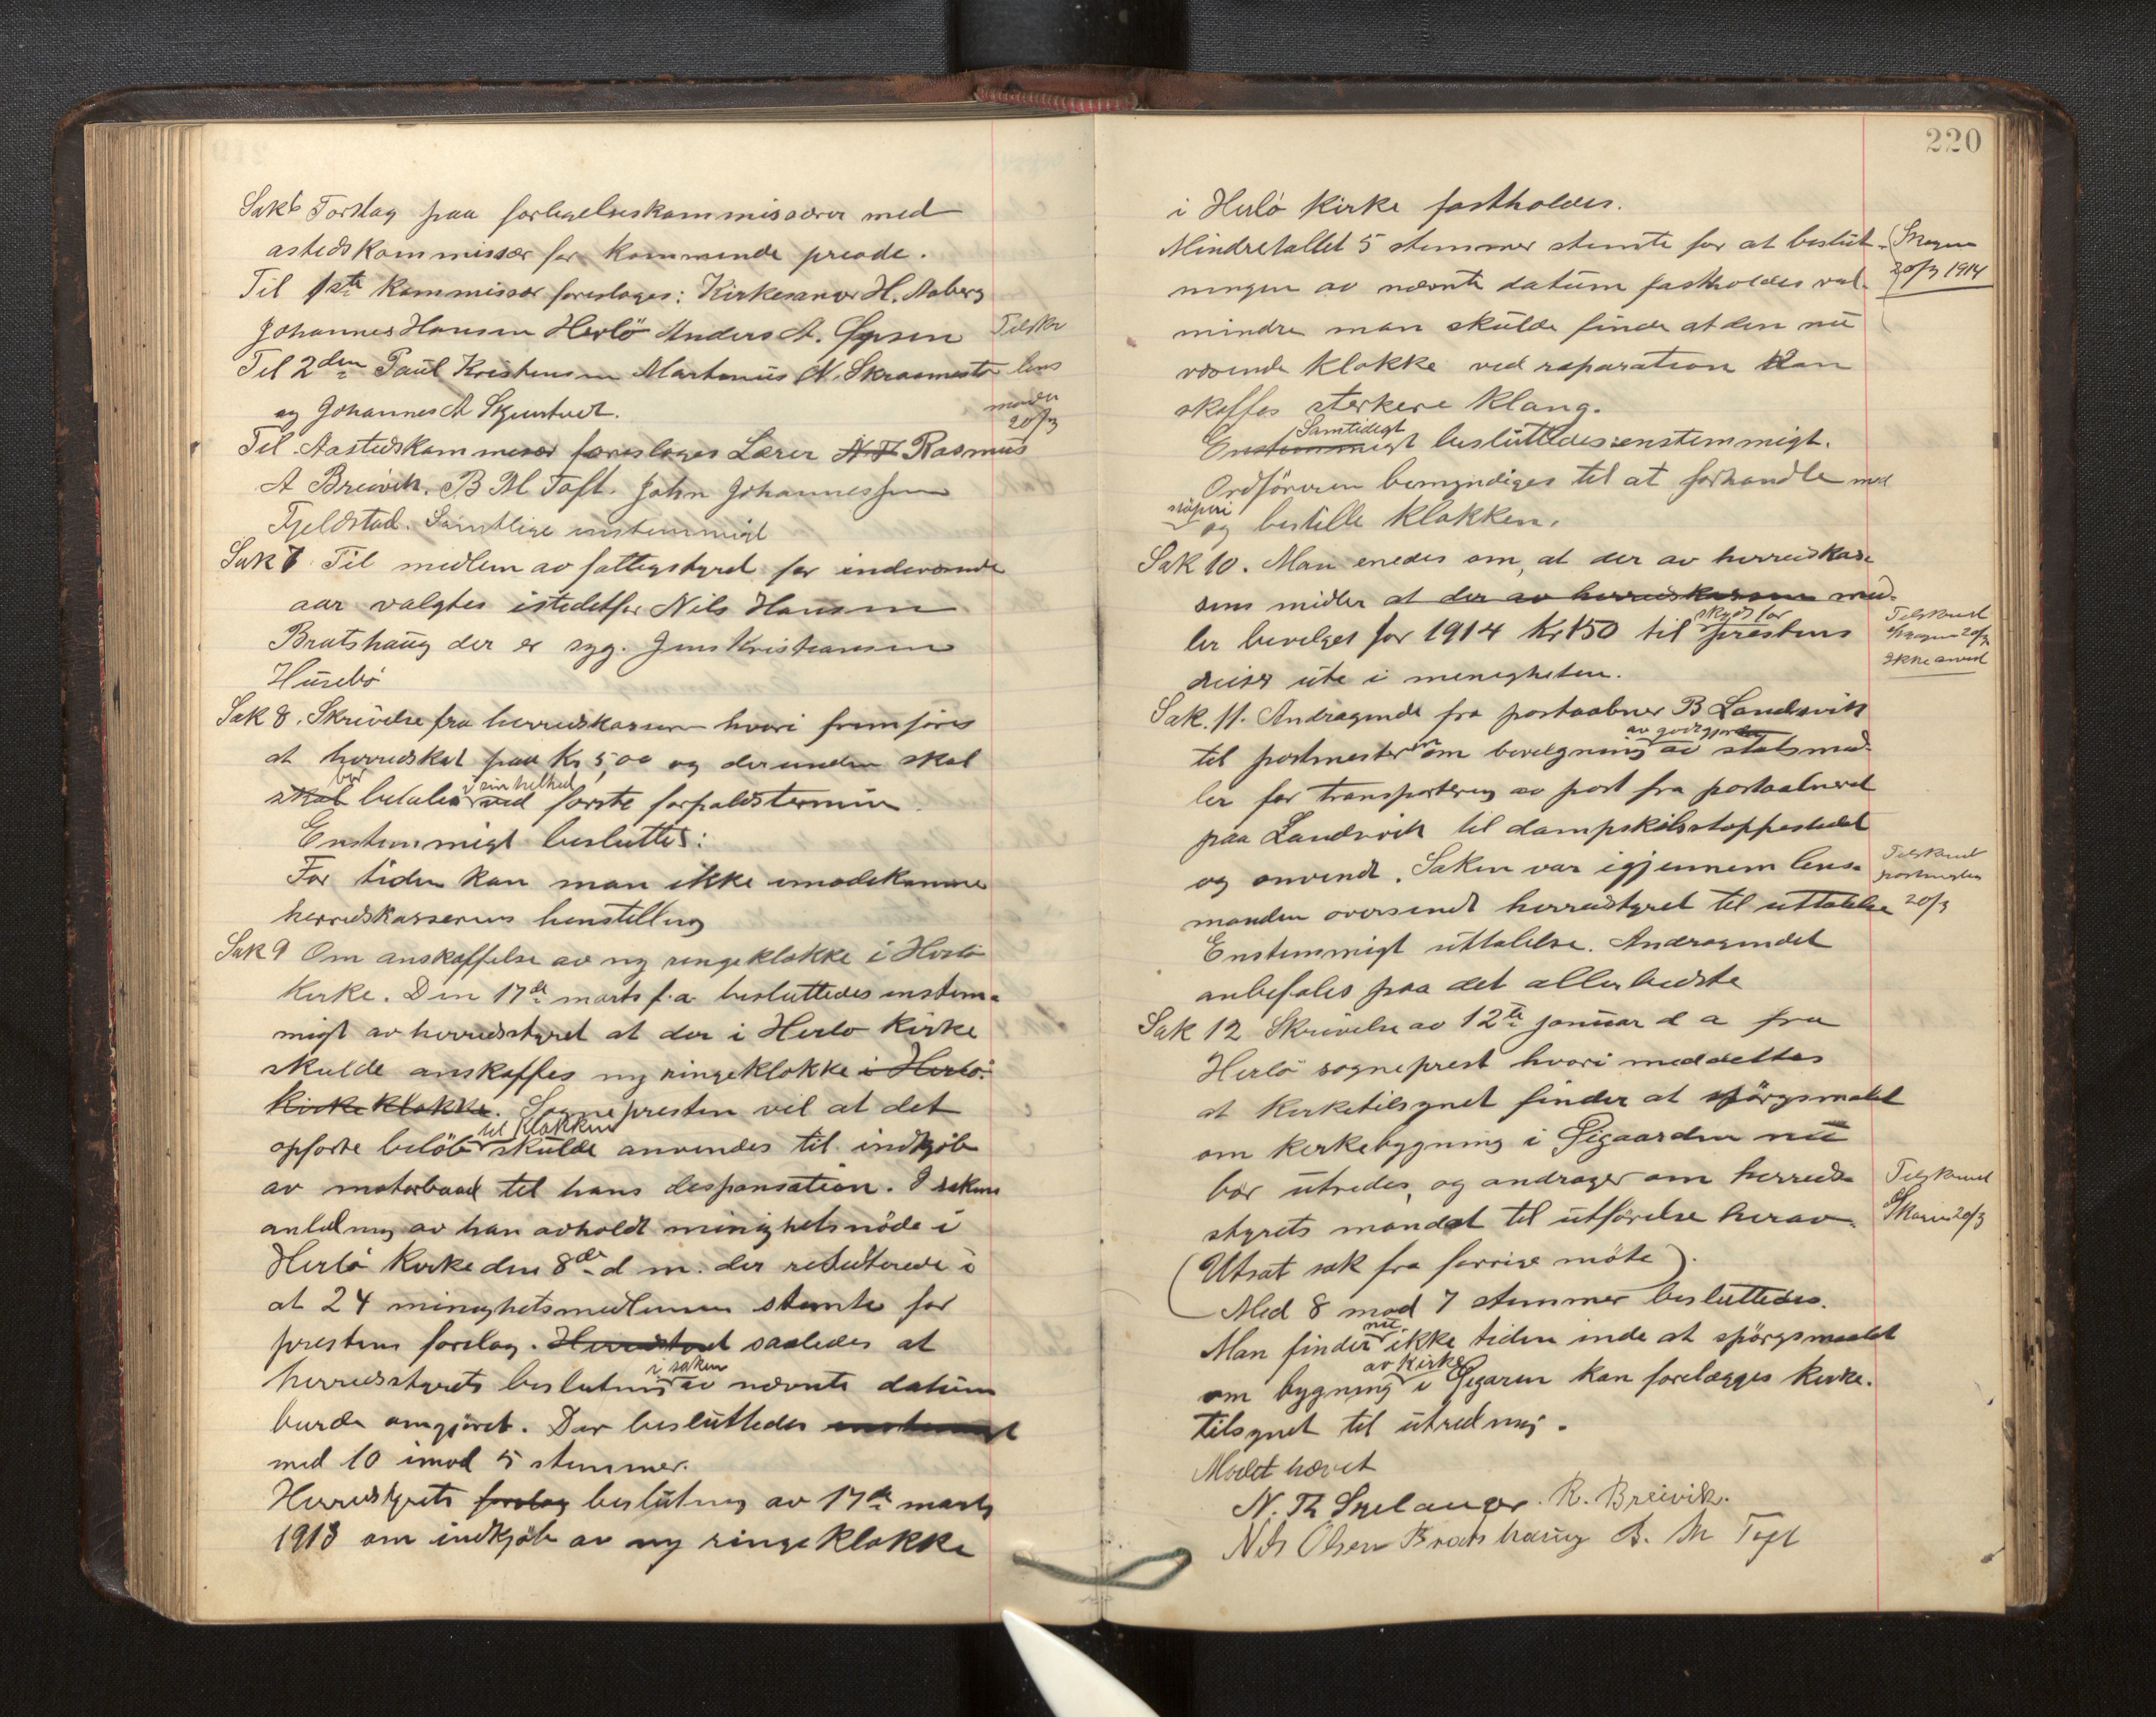 Sak 6 Forslag paa forligelseskommissærer med
astedskommissær for kommende preode.
Til 1ste kommissær foreslages: Kirkesanger H. Aaberg
Johannes Hansen Herlö Anders A.
Til 2den Paul Kristensen Martinus N. Skraamestø
og Johannes A
Tilskr
lens
manden
20/3
Til Aastedskommissær foreslages Lærer N T Rasmus
A Breivik. B M Toft. John Johannessen
Fjeldstad. Samtlige enstemmigt
Sak 7 Til medlem av fattigstyret for indeværende
aar valgtes istedetfor Nils Hansen
Bratshaug der er syg. Jens Kristiansen
Husebö
Sak 8. Skrivelse fra herredskasseren hvori fremføres
at herredskat paa Kr 5,00 og derunder skal
bør i sin helhed
skal betales ved første forfaldstermin.
Enstemmigt beslutted:
For tiden kan man ikke imødekomme
herredskasserens henstilling
Sak 9 Om anskaffelse av ny ringeklokke i Herlö
Kirke. Den 17de marts f.a. besluttedes enstem-
migt av herredsstyret at der i Herlo Kirke
skulde anskaffes ny ringeklokke i Herlö
Kirkeklokke. Sognepresten vil at det
til klokken
opførte belöb skulde anvendes til indkjöb
av motorbaad til hans desponsation. I sakens
anledning av han avholdt minighetsmöde i
Herlö Kirke den 8de d m. der resulterede i
at 24 minighetsmedlemmer stemte for
prestens forslag. Herredstyret saaledes at
i saken
herredsstyrets beslutning av nævnte datum
burde omgjöret. Der besluttedes enstemmigt
med 10 imod 5 stemmer.
Herredstyrets forslag beslutning av 17de marts
1913 om indkjöb av ny ringeklokke
220
i Herlö Kirke fastholdes.
Mindretallet 5 stemmer stemte for at beslut-
ningen av nævnte datum fastholdes val
20/3 1914
mindre man skulde finde at den nu
værende klokke ved raparation kan
skaffes sterkere klang.
Samtidigt
Enstemmigt besluttedes enstemmigt.
Ordföreren bemyndiges til at forhandle med
og bestille klokken.
Sak 10. Man enedes om, at der av herredskas-
sens midler at der av herredskassens mid-
skyds for
ler bevilges for 1914 Kr 150 til prestens
reiser ute i menigheten.
Tilskrevet
20/3
Ikke anvist
Sak. 11. Andragende fra postaabner B Landsvik
av godtgjørelse
til postmesteren om bevilgning av statsmid-
ler for transportering av post fra postaabneriet
paa Landsvik til dampskibsstoppestedet
og omvendt. Saken var igjennem lens-
manden oversendt herredstyret til uttalelse
Tilskrevet
postmesteren
20/3
Enstemmigt uttalelse. Andragendet
anbefales paa det allerbedste
Sak 12 Skrivelse av 12te januar d a fra
Herlö sogneprest hvori meddeltes
at Kirketilsynet finder at spörgsmalet
om kirkebygning i Gigaarden nu
bör utredes, og andrager om herreds-
styrets mandat til utförelse herav.
Tilskrevet
20/3
(Utsat sak fra forrige möte).
Med 8 mod 7 stemmer besluttedes.
nu
Man finder ikke tiden inde at spörgsmaalet
av kirke
om bygning i Gigaren kan forelægges kirke-
tilsynet til utredning.
Mødet hævet
N. Th R. Breivik.
Nils Olsen Bratshaug B. M Toft